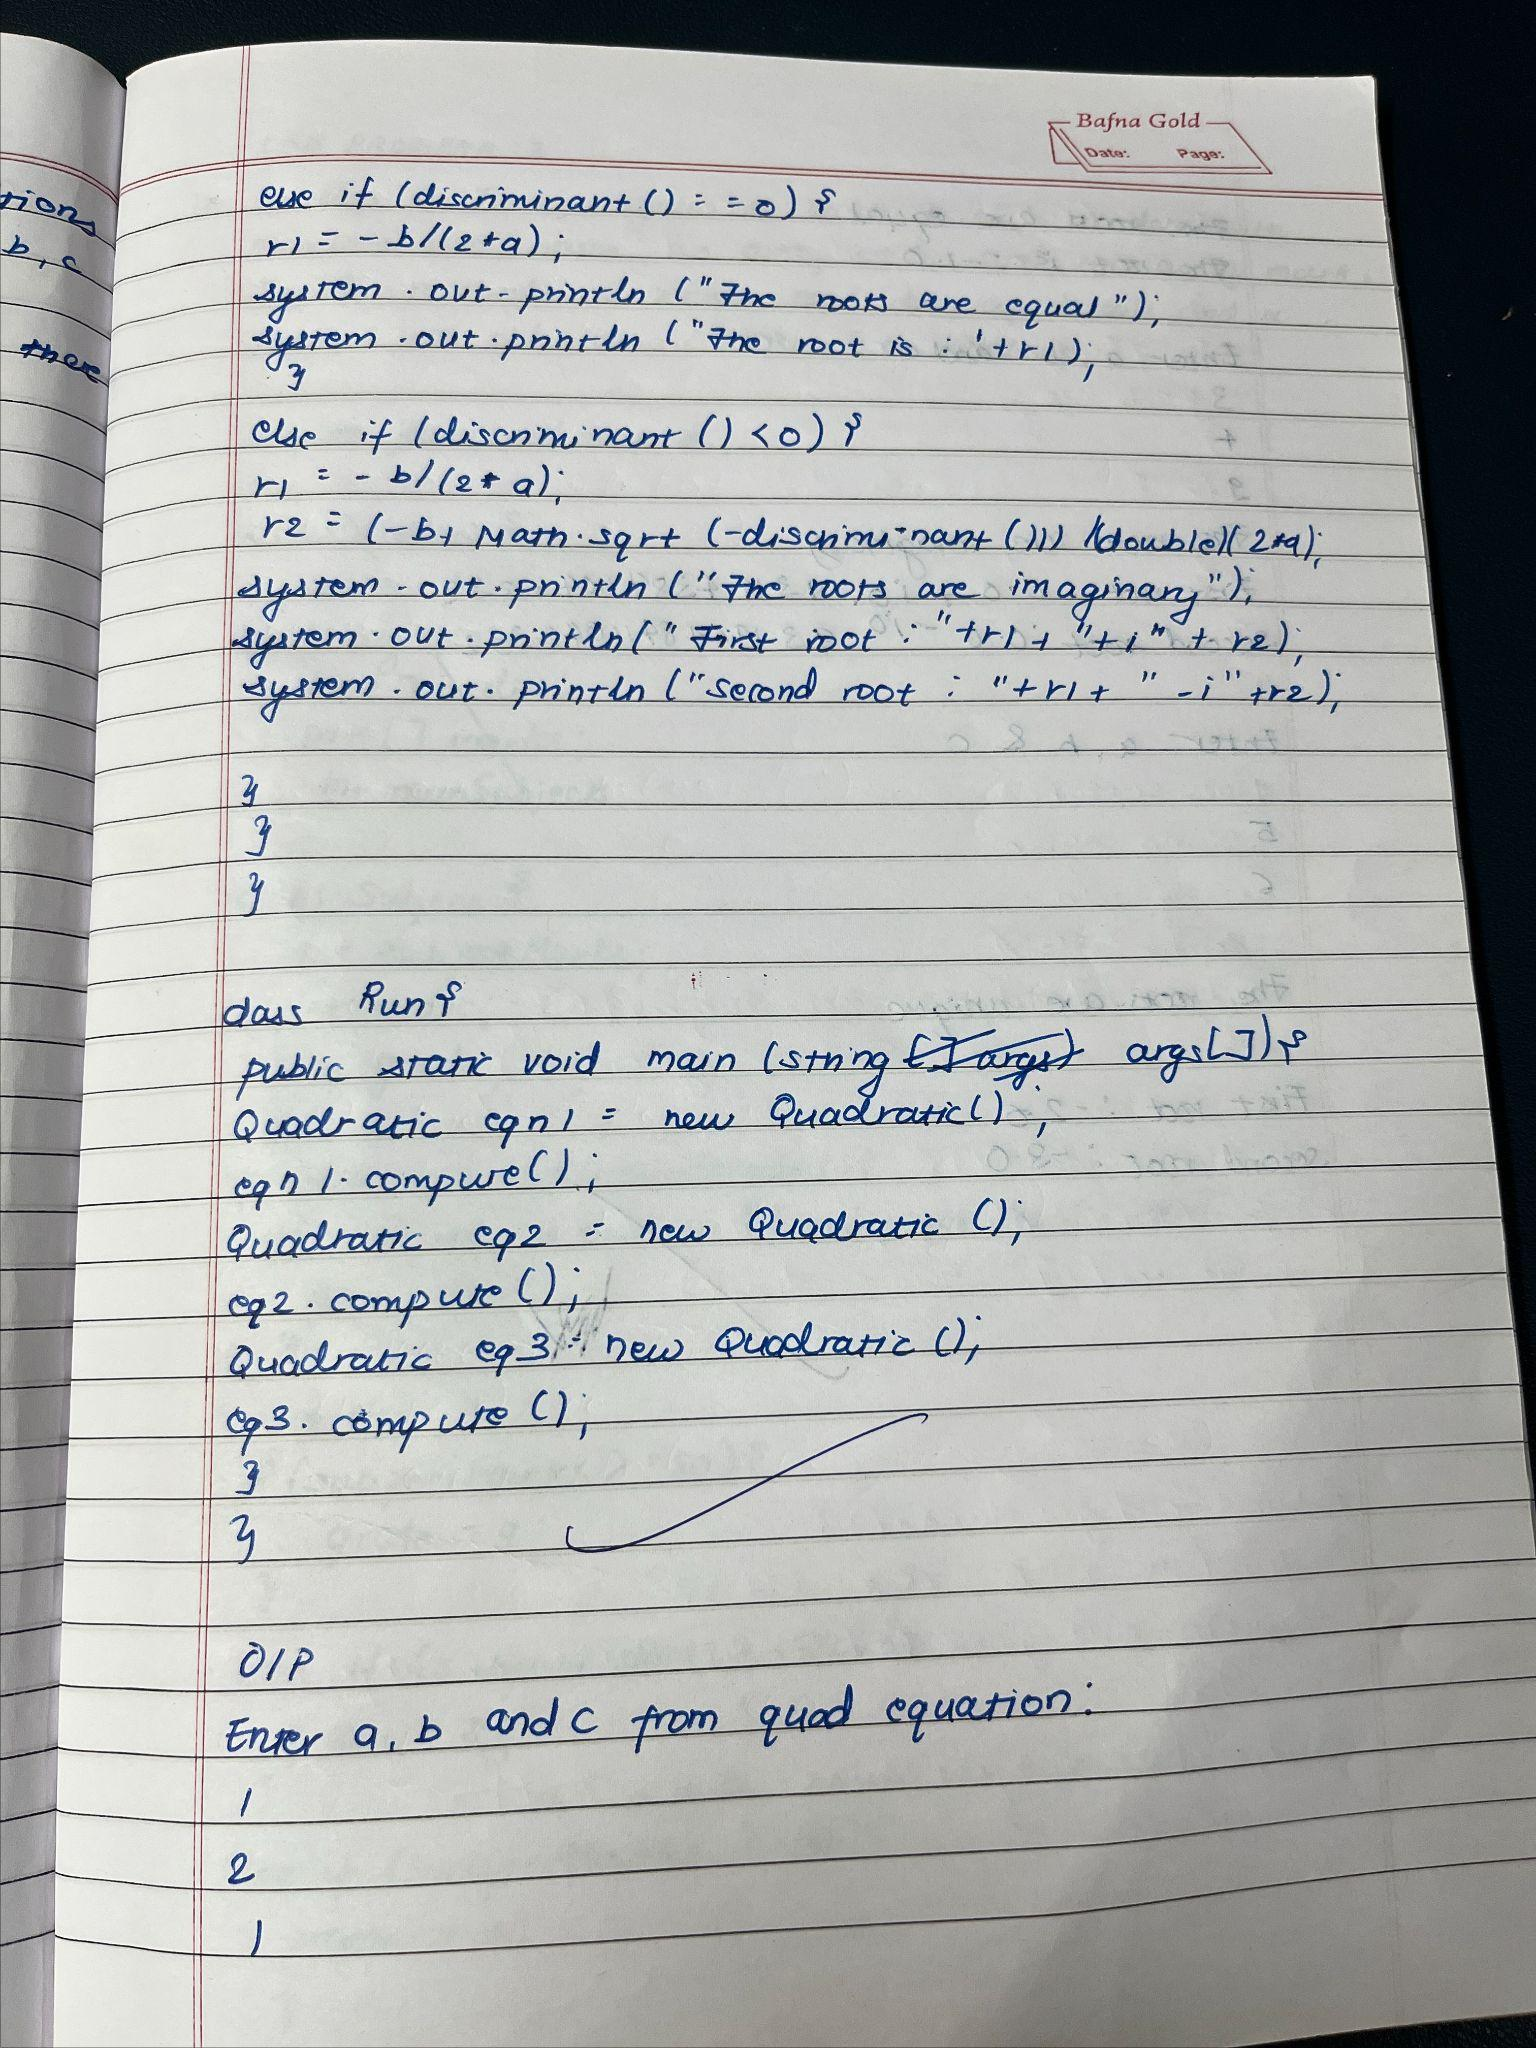 Bafna Gold
Date: Page:
tions
b, c
there
else if (discriminant () = = 0) {
r1 = - b/(2*a);
system . out - println ("The roots are equal");
system . out . println ("The root is : '+r1);
}
else if (discriminant () <0) {
r1 = - b/(2* a);
r2 = (-b+ Math.sqrt (-discrimi-nant ())) /(double)(2*a);
system - out . println ("The roots are imaginary");
system . out . println(" First root : "+r1+ "+i" + r2);
system . out . println ("second root : "+r1+ " -i" +r2);
}
}
}
class Run{
public static void main (string [] args) args[]){
Quadratic eqn1 = new Quadratic();
eqn1. compute();
Quadratic eq2 = new Quadratic ();
eq2. compute ();
Quadratic eq3 = new Quadratic ();
eq3. compute ();
}
}
O/P
Enter a, b and c from quad equation:
1
2
1